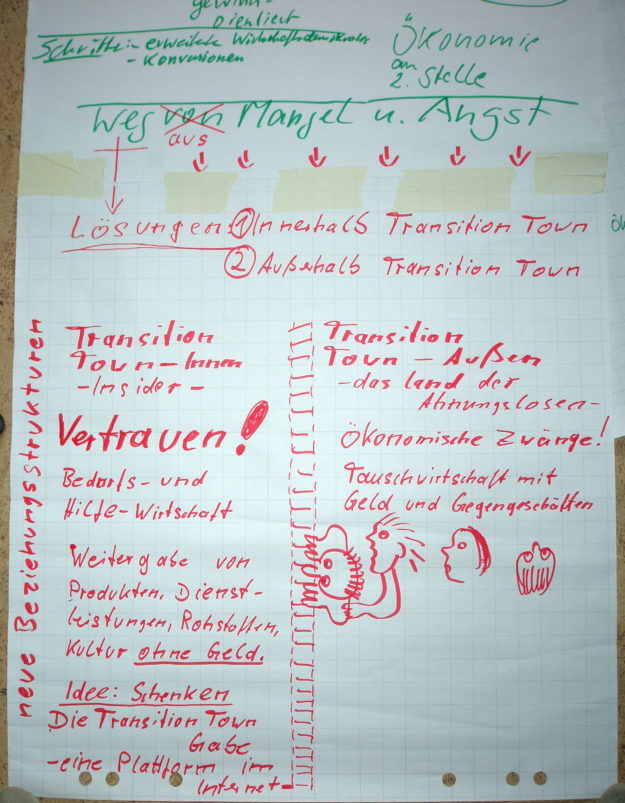 gewinn-
orientiert
Schritte: - erweiterte Wirtschaftsdemokratie
- Konversionen
Ökonomie
an
2. Stelle
Weg von Mangel u. Angst
aus
Lösungen: 1 Innerhalb Transition Town
2 Außerhalb Transition Town
neue Beziehungsstrukturen
Transition
Town - Innen
- Insider -
Vertrauen!
Bedarfs- und
Hilfe-Wirtschaft
Weitergabe von
Produkten, Dienst-
leistungen, Rohstoffen,
Kultur ohne Geld.
Idee: Schenken
Die Transition Town
Gabe
- eine Plattform im
Internet -
Transition
Town - Außen
- das land der
Ahnungslosen -
Ökonomische Zwänge!
Tauschwirtschaft mit
Geld und Gegengeschäften